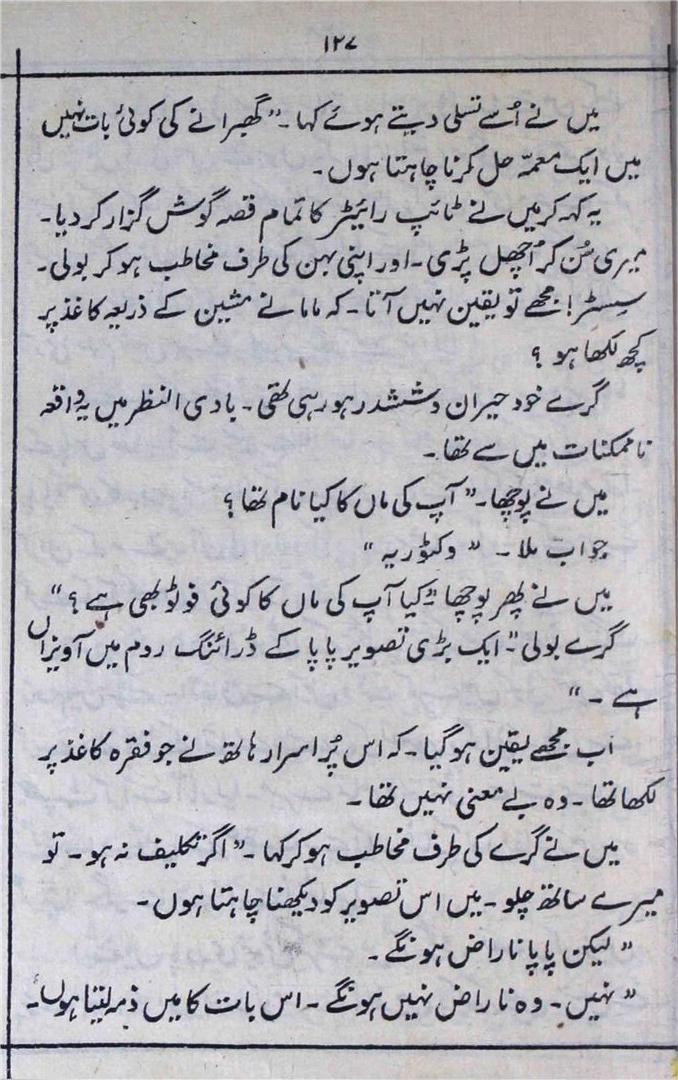 ۱۲۷
میں نے اُسے تسلی دیتے ہوئے کہا۔ ”گھبرانے کی کوئی بات نہیں
میں ایک معمّہ حل کرنا چاہتا ہوں۔
یہ کہہ کر میں نے ٹائپ رائیٹر کا تمام قصہ گوش گزار کر دیا۔
میری سُن کر اُچھل پڑی۔ اور اپنی بہن کی طرف مخاطب ہو کر بولی۔
سسٹر! مجھے تو یقین نہیں آتا۔ کہ ماما نے مشین کے ذریعہ کاغذ پر
کچھ لکھا ہو ؟
گرے خود حیران و ششدر ہو رہی تھی۔ بادی النظر میں یہ واقعہ
ناممکنات میں سے تھا۔
میں نے پوچھا۔ ”آپ کی ماں کا کیا نام تھا؟
جواب ملا۔ ”وکٹوریہ“
میں نے پھر پوچھا ”کیا آپ کی ماں کا کوئی فوٹو بھی ہے ؟“
گرے بولی ”۔ ایک بڑی تصویر پاپا کے ڈرائنگ روم میں آویزاں
ہے۔“
اب مجھے یقین ہو گیا۔ کہ اس پُراسرار ہاتھ نے جو فقرہ کاغذ پر
لکھا تھا۔ وہ بے معنی نہیں تھا۔
میں نے گرے کی طرف مخاطب ہو کر کہا۔ ”اگر تکلیف نہ ہو۔ تو
میرے ساتھ چلو۔ میں اس تصویر کو دیکھنا چاہتا ہوں۔
”لیکن پاپا ناراض ہونگے۔
”نہیں۔ وہ ناراض نہیں ہونگے۔ اس بات کا میں ذمہ لیتا ہوں۔